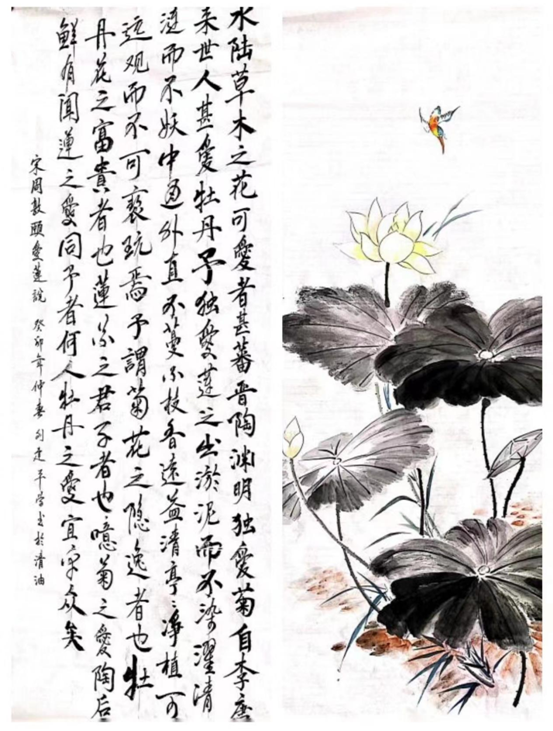 水陆草木之花可愛者甚蕃晋陶渊明独愛菊自李唐
来世人甚愛牡丹予独愛莲之出淤泥而不染濯清
涟而不妖中通外直不蔓不枝香远益清亭々净植可
远观而不可亵玩焉予謂菊花之隐逸者也牡
丹花之富貴者也蓮花之君子者也噫菊之愛陶后
鲜有闻蓮之愛同予者何人牡丹之愛宜乎众矣
宋周敦頤愛蓮説 癸卯年仲春 刘建平学书於清油